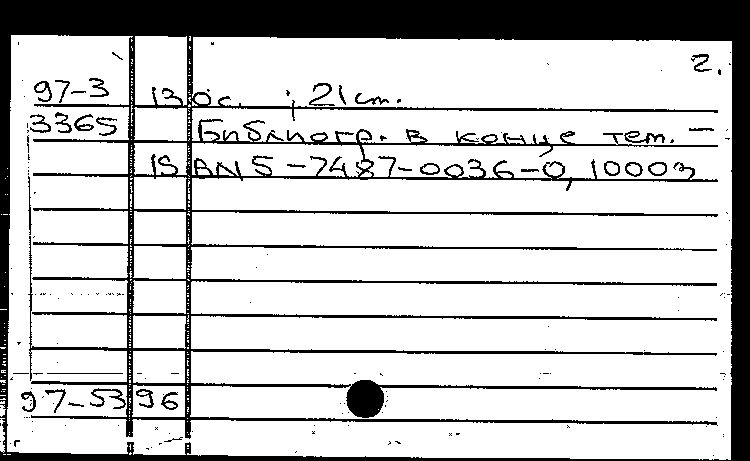 2.
97-3 130с. ; 21 см.
3365 Библиогр. в конце тем. –
ISBN 5-7487-0036-0, 1000э
97-5396